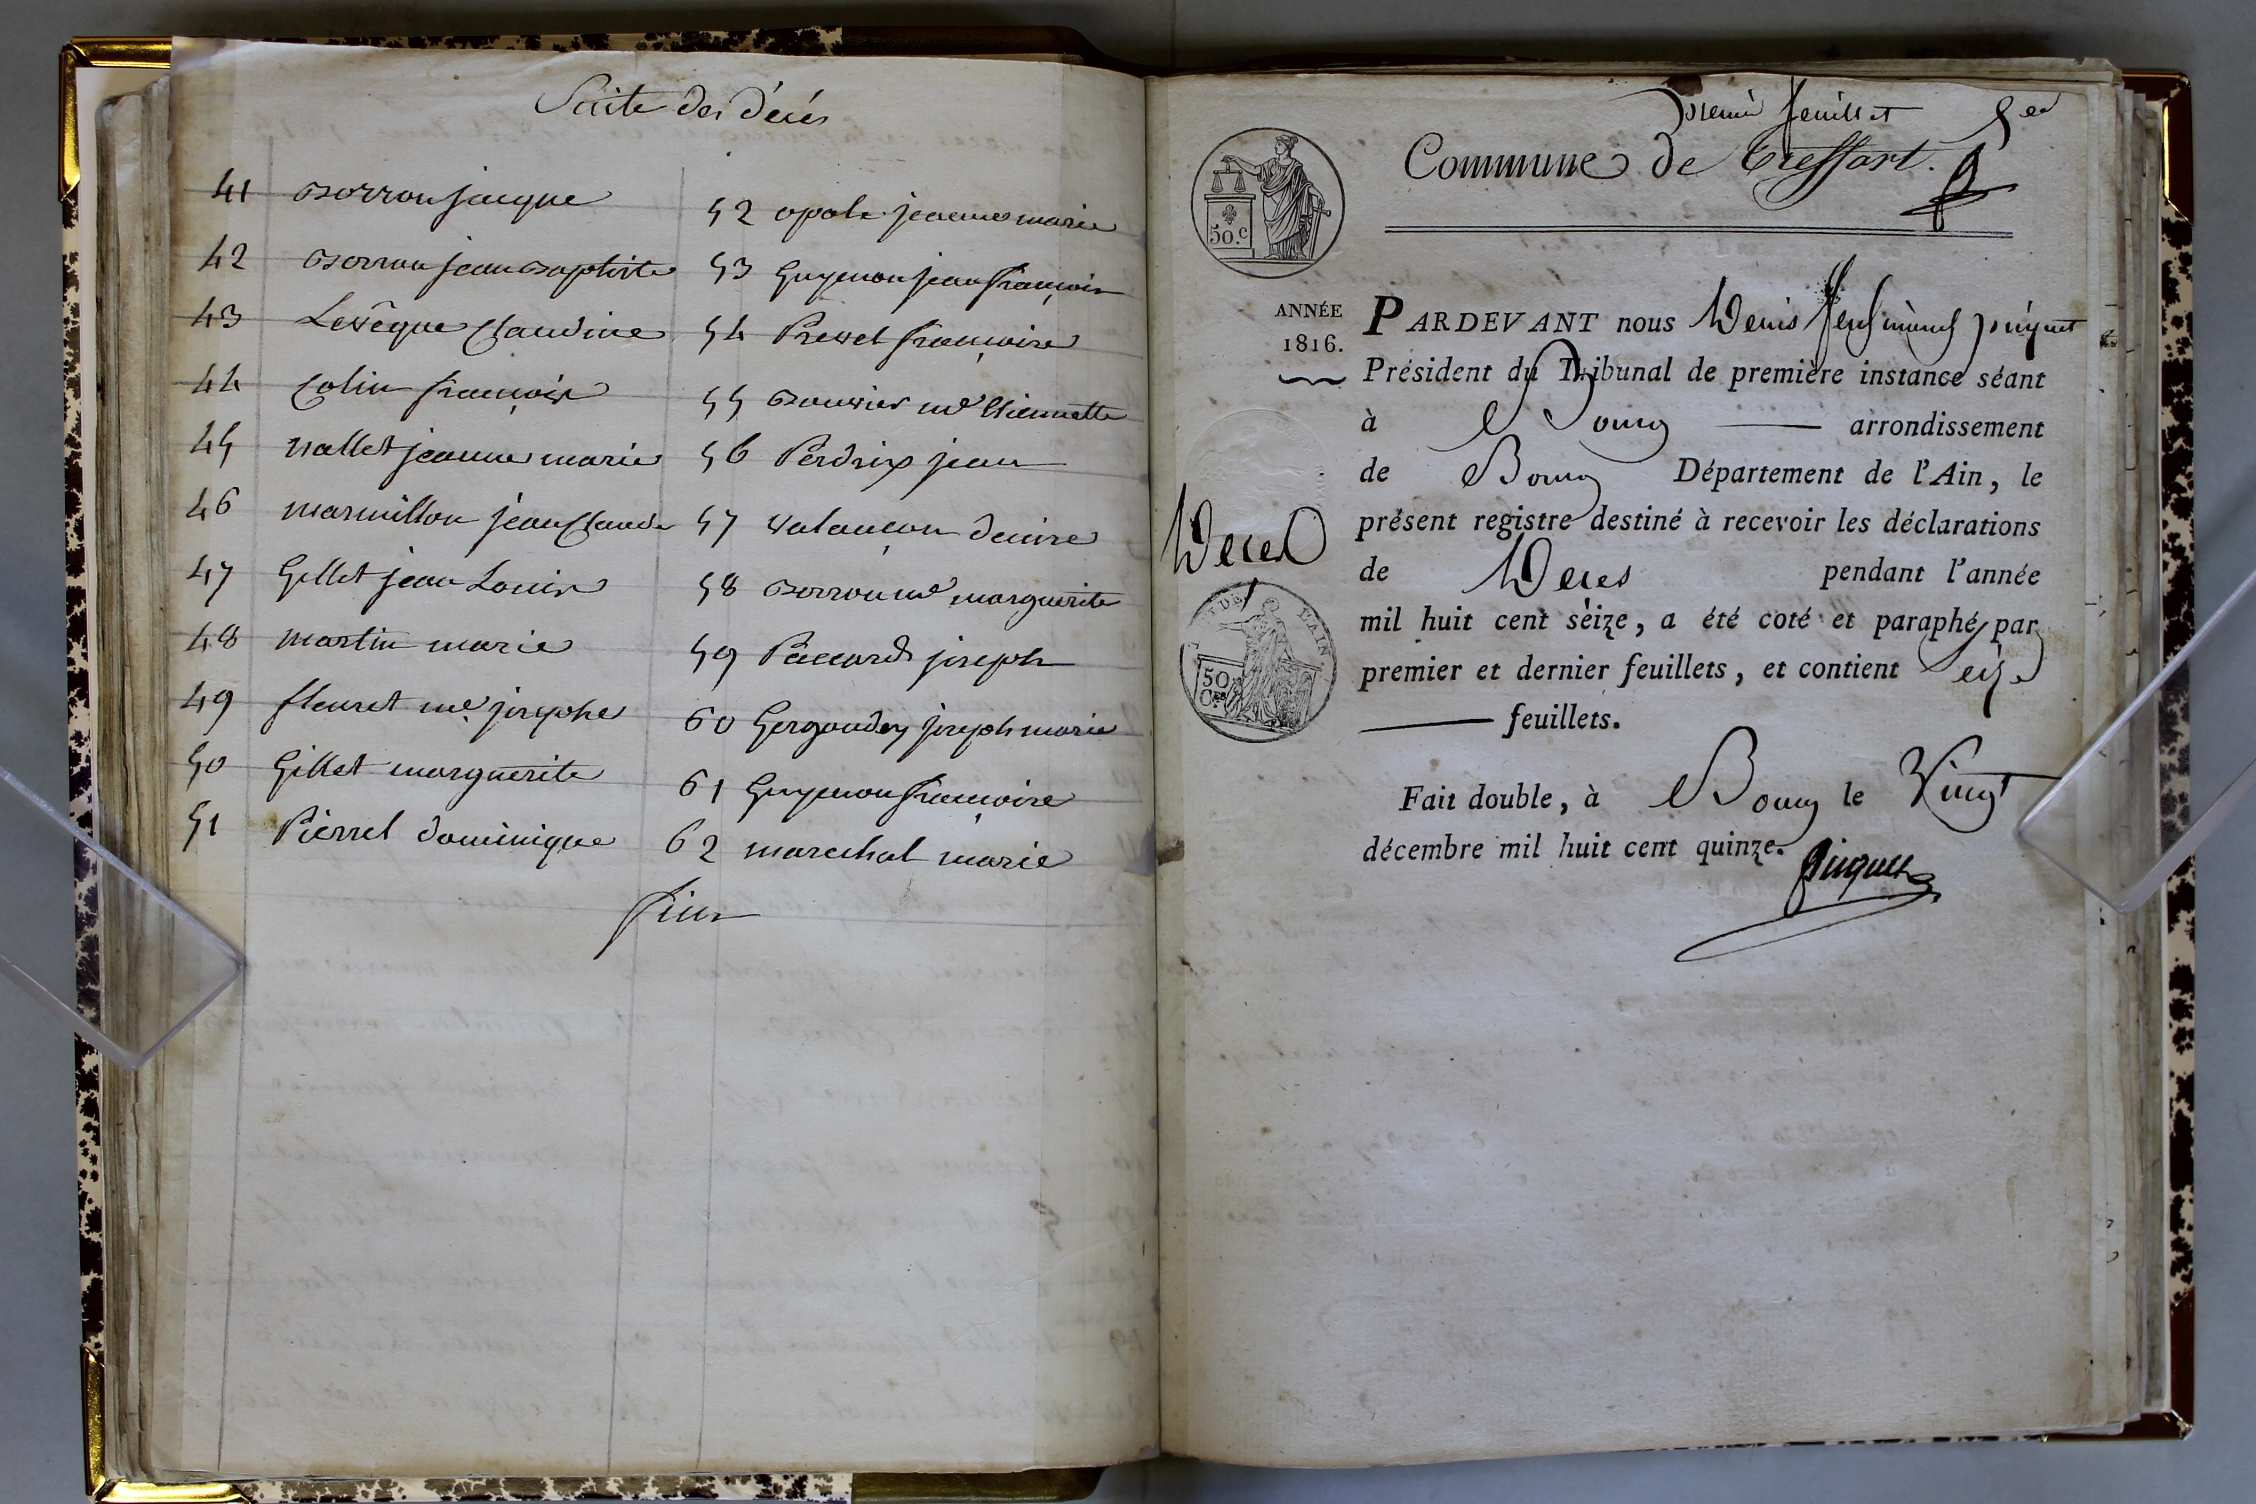 Suite des décès
41 Borron jacque
42 Borron jean Baptiste
43 Levêque Claudine
44 Colin françois
45 vallet jeanne marie
46 marmillon jean Claude
47 Gillet jean Louis
48 martin marie
49 fleuret me josephe
50 Gillet marguerite
51 Pierrel dominique
52 opale jeanne marie
53 Guymon jean françois
54 Prevel françoise
55 Bouvier me Etiennette
56 Perdrix jean
57 valançon denise
58 Borron me marguerite
59 Paccard joseph
60 Gergouday joseph marie
61 Guymon françoise
62 marechal marie
fin
premier feuillet
Commune de Treffort.
50.c
ANNÉE
1816.
PARDEVANT nous Denis ferdinand piquet
Président du Tribunal de première instance séant
à Bourg arrondissement
de Bourg Département de l'Ain, le
présent registre destiné à recevoir les déclarations
Deces
de Deces pendant l'année
mil huit cent seize, a été coté et paraphé par
premier et dernier feuillets, et contient Seize
feuillets.
AIN
50
Ces
Fait double, à Bourg le Vingt
décembre mil huit cent quinze.
Piquet